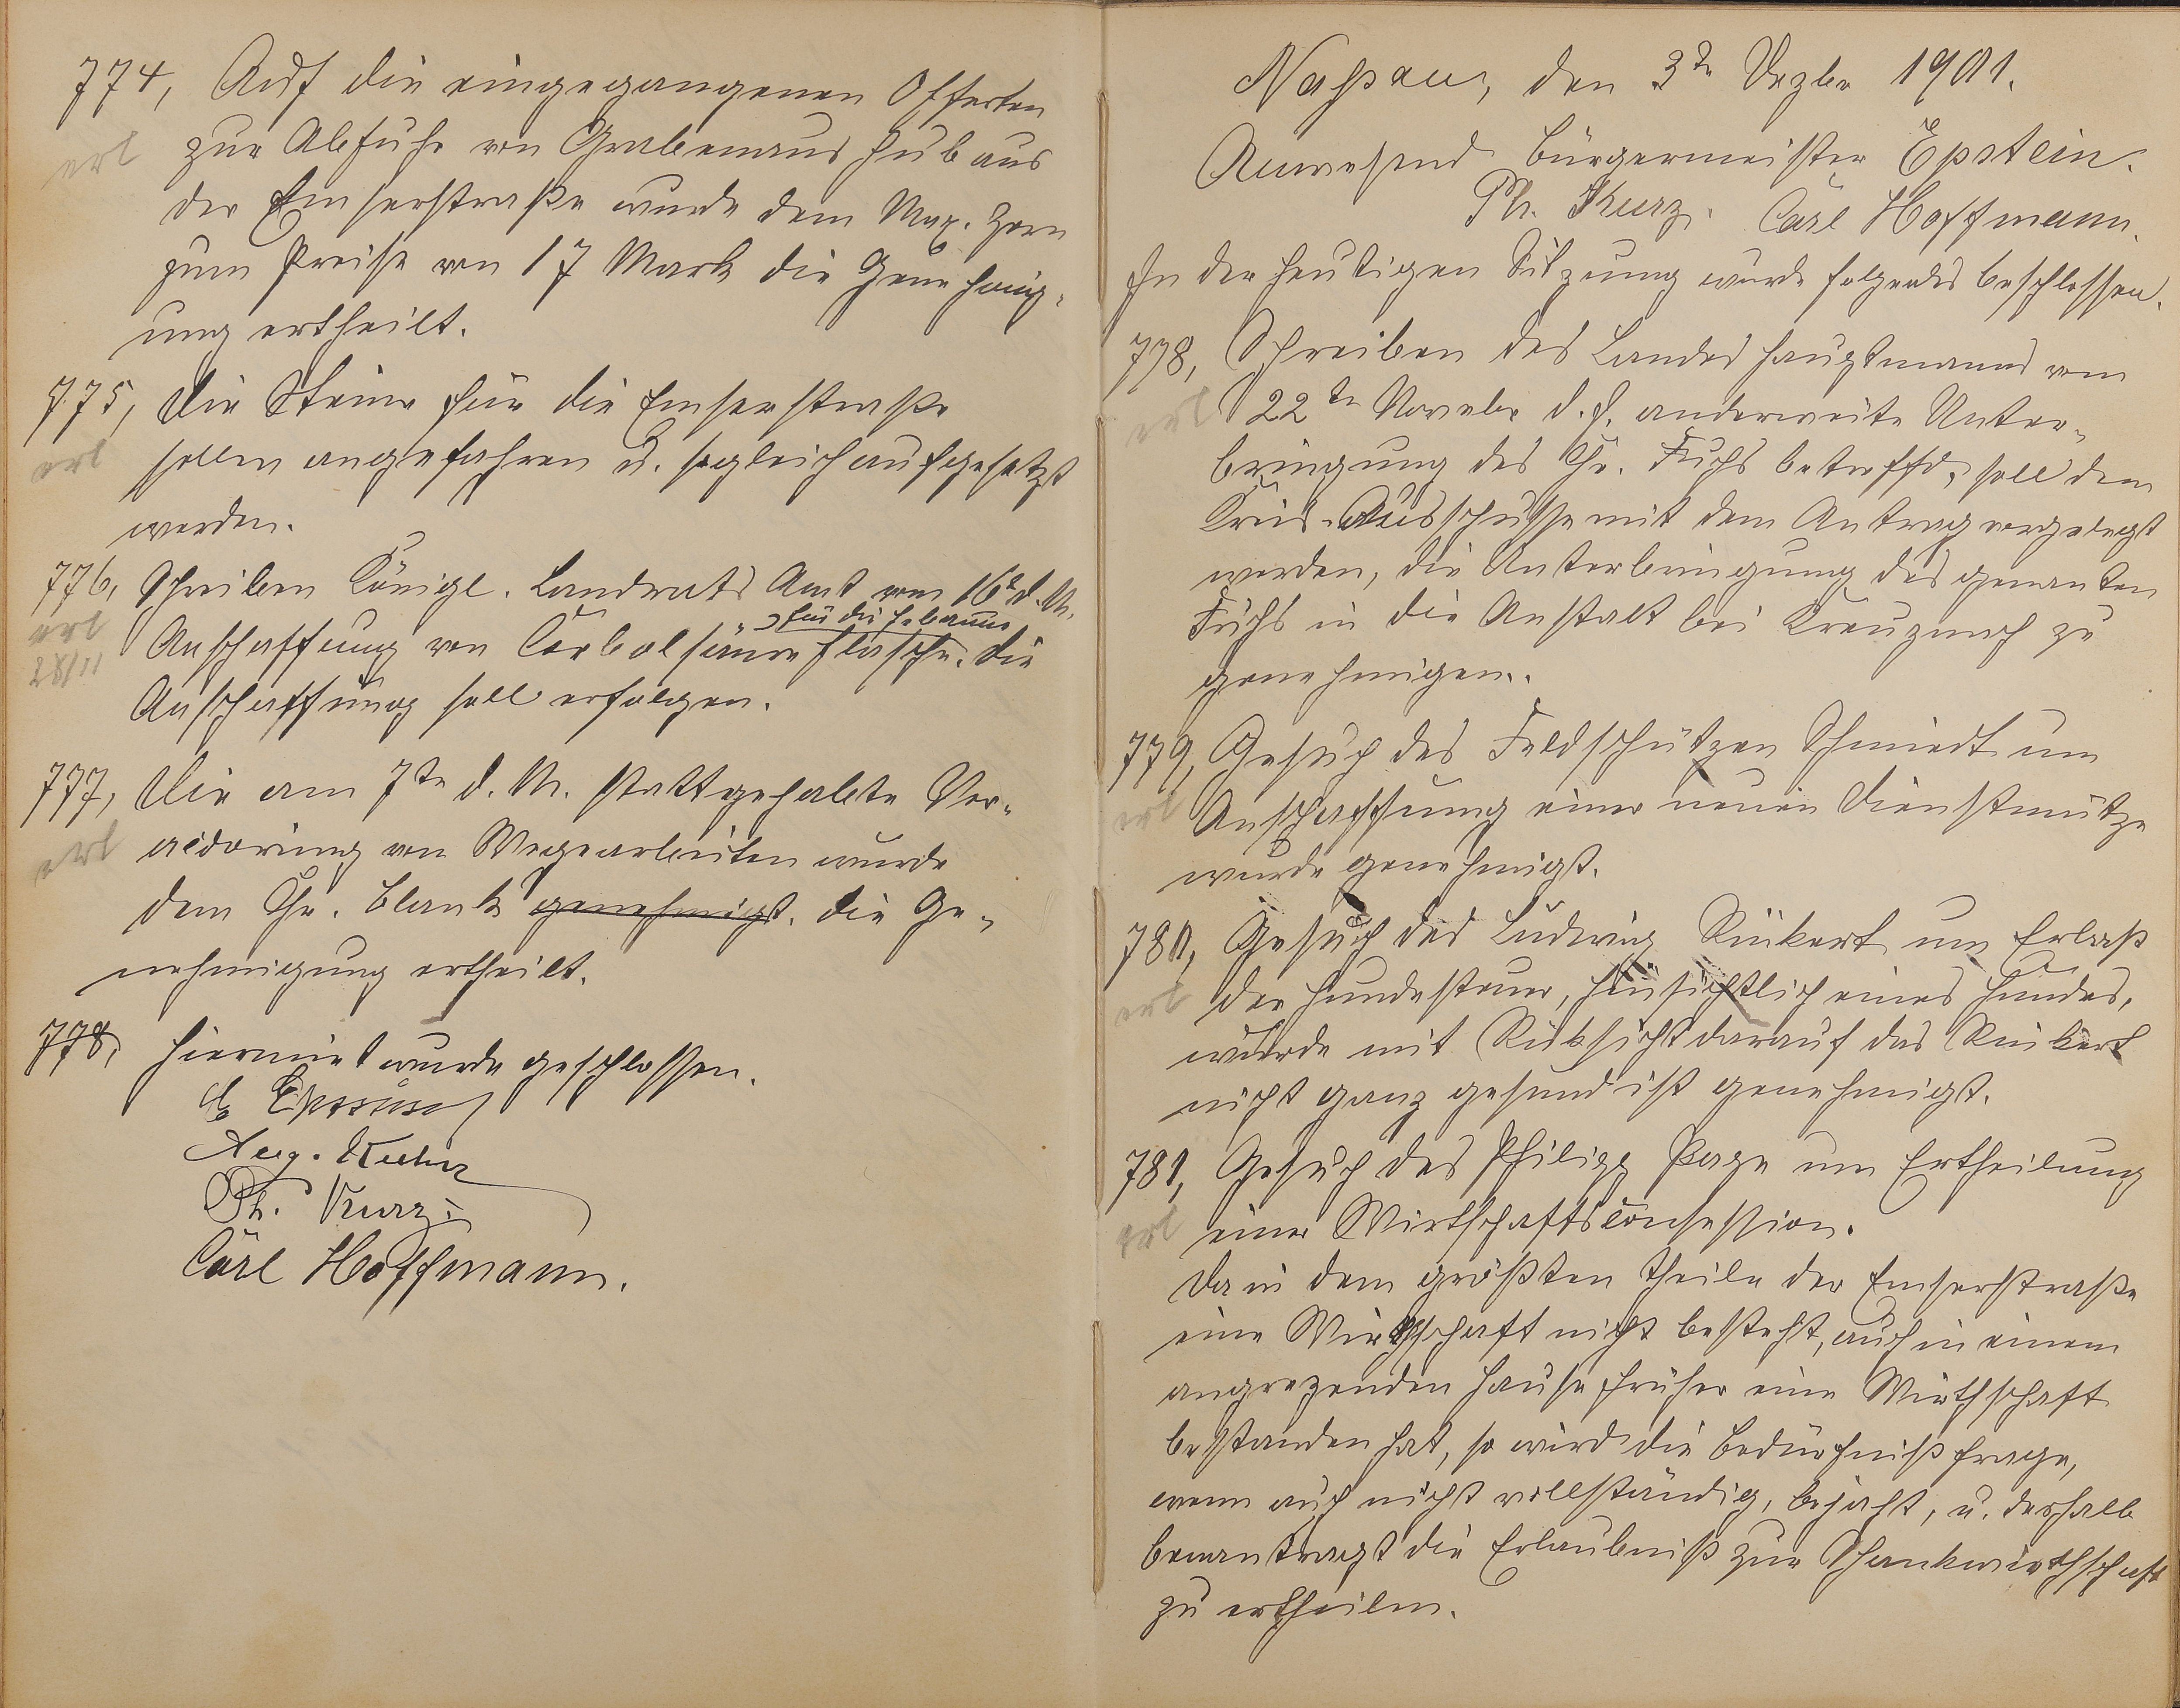 774, Auf die eingegangenen Offerten
erl zur Abfuhr von Grabenaushub aus
der Emserstraße wurde dem Max. Zorn
zum Preise von 17 Mark die Genehmig-
ung ertheilt.
775, Die Steine für die Emserstraße
erl sollen angefahren u. sogleich aufgesetzt
werden.
776, Schreiben Königl. Landrats Amt vom 16t d. M.
für die Hebamme
erl Anschaffung von Carbolsäureflasche. Die
28/11
Anschaffung soll erfolgen.
777, Die am 7tn d. M. stattgehabte Ver-
erl accdorirung von Wegearbeiten wurde
dem Chr. Blank genehmigt. die Ge-
nehmigung ertheilt.
778, Hiermit wurde geschlossen.
Epstein
Aug. Kuhn
Ph. Kurz.
Carl Hoffmann.
Nassau, den 3tn Dezbr 1901.
Anwesend Bürgermeister Epstein.
Ph. Kurz. Carl Hoffmann.
In der heutigen Sitzung wurde folgendes beschlossen.
778, Schreiben des Landeshauptmanns vom
erl 22tn Novebr d. J. anderweite Unter-
bringung des Chr. Fuchs betreffd, soll dem
Kreis-Ausschusse mit dem Antrag vorgelegt
werden, die Unterbringung des genanten
Fuchs in die Anstalt bei Kreuznach zu
genehmigen.
779, Gesuch des Feldschützen Schmidt um
erl Anschaffung einer neuen Dienstmütze
wurde genehmigt.
780, Gesuch des Ludwig Rückert um Erlaß
erl der Hundesteuer, hinsichtlich eines Hundes,
wurde mit Rücksicht darauf das Rückert
nicht ganz gesund ist genehmigt.
781, Gesuch des Philipp um Ertheilung
erl einer Wirthschaftsconsession.
Da in dem größten Theile der Emserstraße
eine Wirthschaft nicht besteht, auch in einem
angrezenden Hause früher eine Wirthschaft
bestanden hat, so wird die Bedürfnißfrage,
wenn auch nicht vollständig, bejaht, u. deshalb
beantragt die Erlaubniß zur Schankwirthschaft
zu ertheilen.